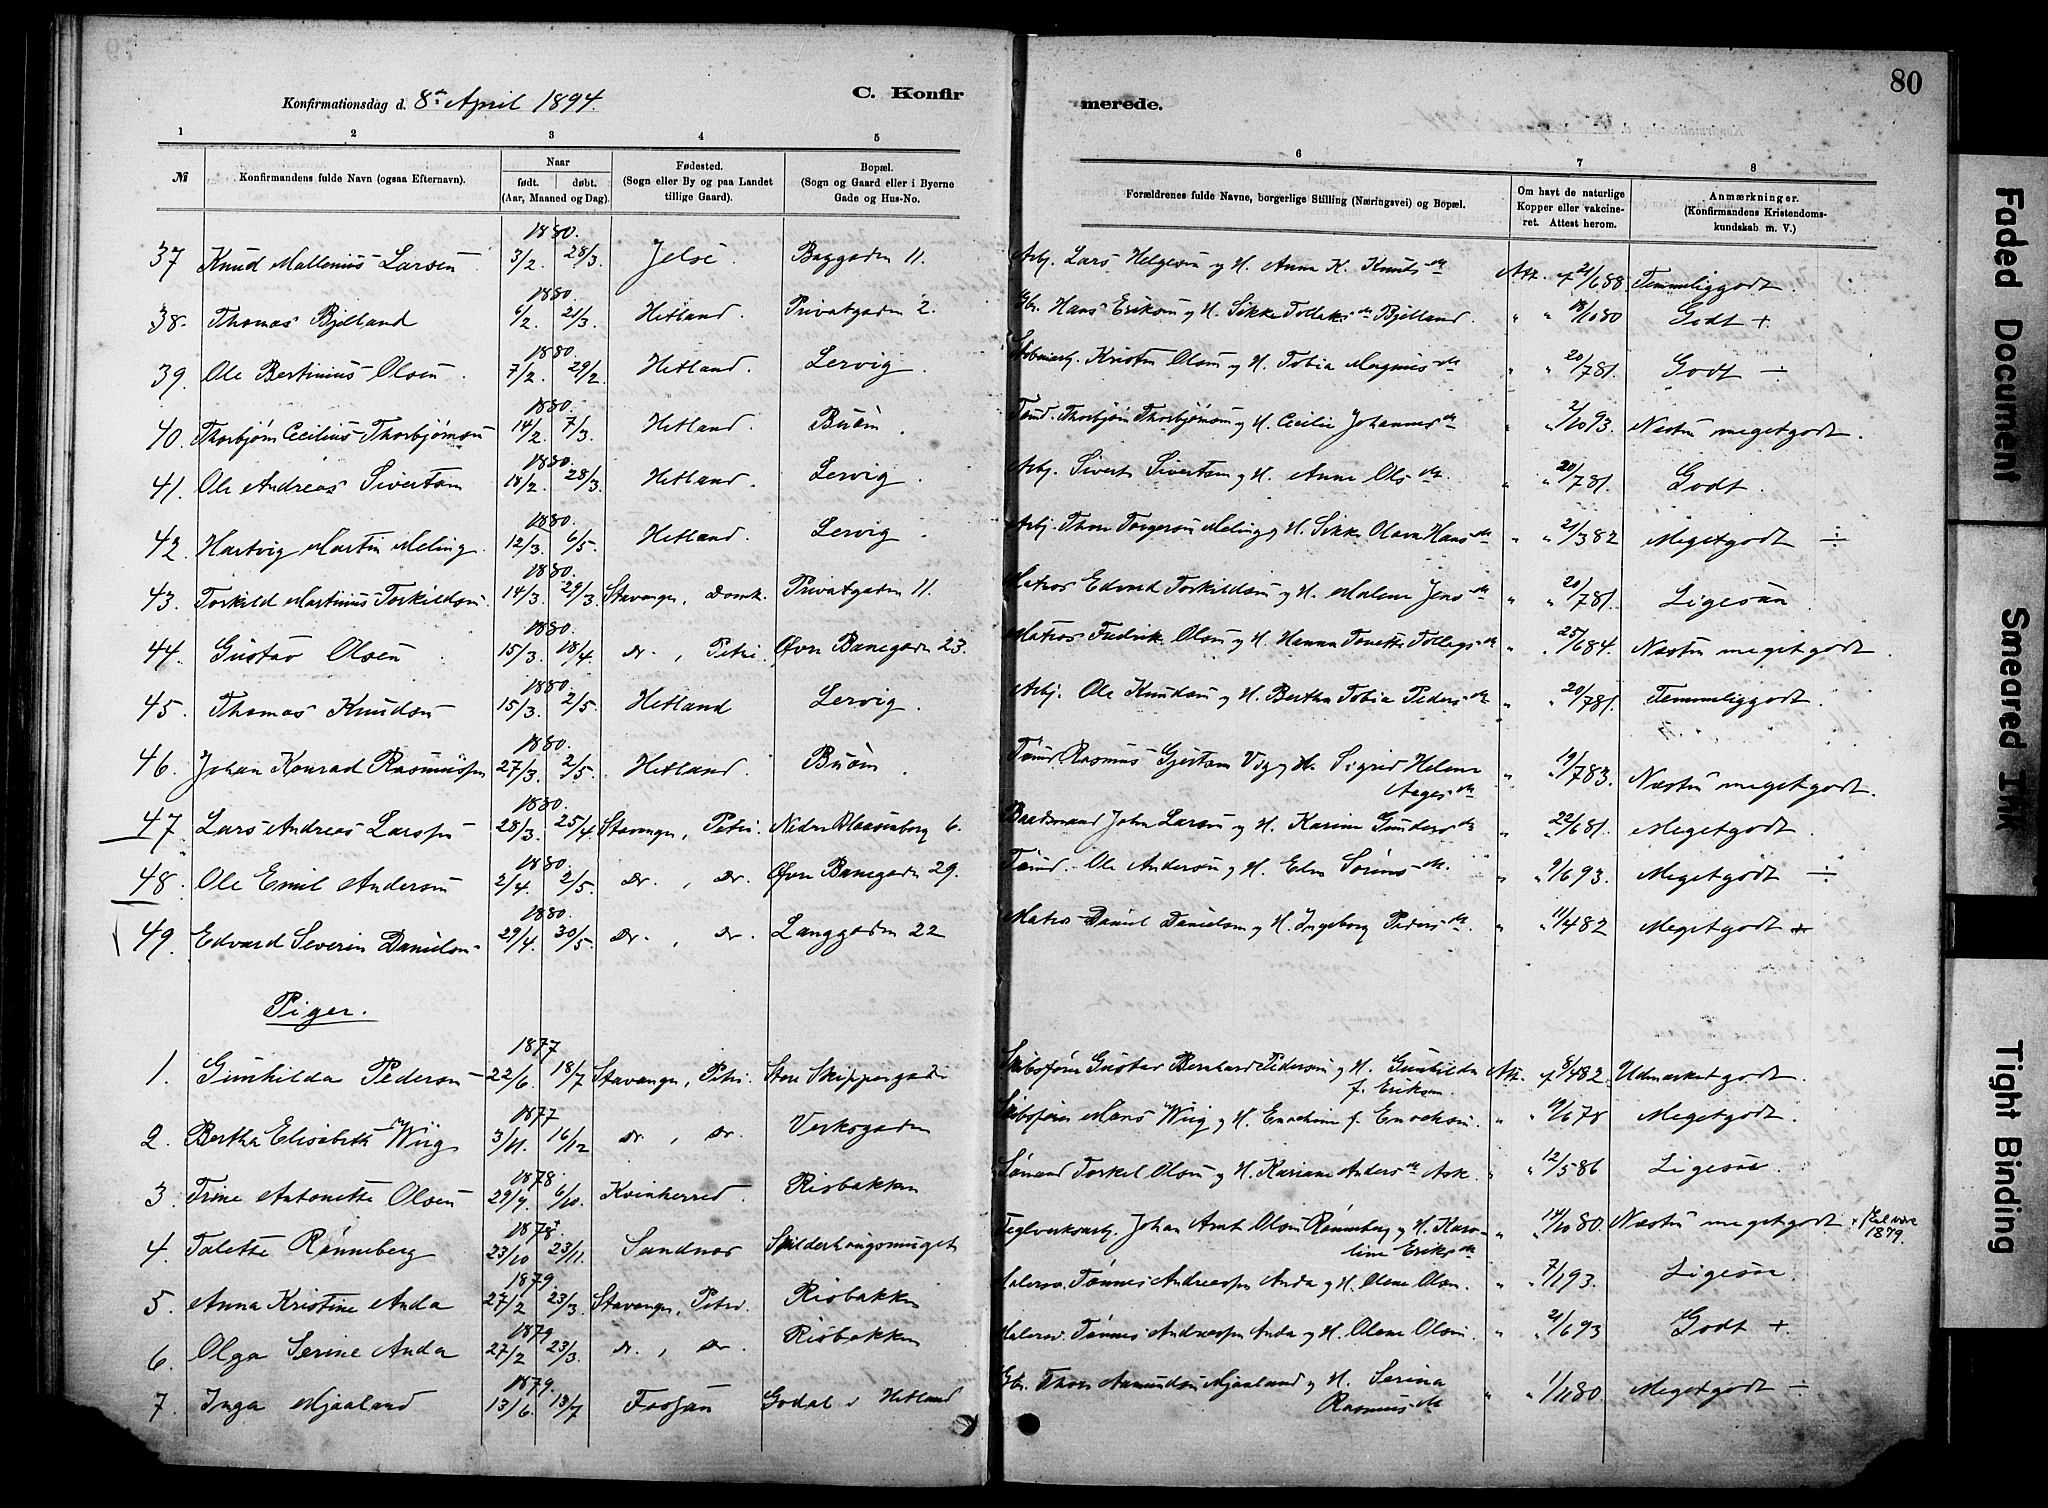 80
Konfirmationsdag d. 8de April 1894.
C. Konfir
merede.
1 2 3 4 5 6 7 8
№ Konfirmandens fulde Navn (ogsaa Efternavn). Naar født. døbt. (Aar, Maaned og Dag). Fødested. (Sogn eller By og paa Landet tillige Gaard). Bopæl. (Sogn og Gaard eller i Byerne Gade og Hus-No. Forældrenes fulde Navne, borgerlige Stilling (Næringsvei) og Bopæl. Om havt de naturlige Kopper eller vakcineret. Attest herom. Anmærkninger. (Konfirmandens Kristendomskundskab m. V.)
37 Knud Mallenius Larsen 1880. 3/2. 28/3. Jelse Baggaden 11. Arb. Lars Helgesen og H. Anna K. Knutsdr Att. af 21/6 88 Temmeliggodt.
38. Thomas Bjelland 1880. 6/2. 21/3. Hetland. Privatgaden 2. Gbr. Hans Eriksen og H. Sikke Tollaksdr Bjelland. " " 18/10 80 Godt +
39. Ole Bertinius Olsen. 1880. 7/2. 29/2. Hetland. Lervig. Kristen Olsen og H. Tobia Magnusdr " " 20/7 81. Godt ÷
40. Thorbjørn Cecilius Thorbjørnsen 1880. 14/2. 7/3. Hetland Buøen. Tømd. Thorbjørn Thorbjørnsen og H. Cecilie Johannesdr " " 2/10 93. Næsten megetgodt.
41. Ole Andreas Sivertsen 1880. 18/2. 28/3. Hetland. Lervig. Arbj. Sivert Sivertsen og H. Anne Olsdr. " " 20/7 81. Godt.
42. Hartvig Martin Meling. 1880. 12/3. 6/5. Hetland. Lervig. Arbj. Thore Torgersen Meling og H. Sikke Olava Hansdr " " 21/3 82 Megetgodt ÷
43. Torkild Martinius Torkildsen. 1880. 14/3. 29/3. Stavanger, Domk. Privatgaden 11. Matros Edvard Torkildsen og H. Malene Jensdr " " 20/7 81. Ligesaa
44. Gustav Olsen 1880. 15/3. 18/4. do. , Petri. Øvre Banegaden 23. Matros Fredrik Olsen og H. Hanna Tonette Tollagsdr " " 25/6 84. Næsten megetgodt.
45. Thomas Knudsen 1880. 15/3. 2/5. Hetland Lervig. Arbj. Ole Knudsen og H. Bertha Tobia Pedersdr " " 20/7 81. Temmeliggodt.
46. Johan Konrad Rasmussen 1880. 27/3. 2/5. Hetland. Buøen. Tømd. Rasmus Gjertsen Vig og H. Sigrid Helene Aagesdr " " 19/7 83. Næsten megetgodt.
47. Lars Andreas Larssen 1880. 28/3. 25/4. Stavanger, Petri. Nedre Blaasenborg 6. Baadsmand John Larsen og H. Karine Gundersdr " " 22/6 81. Megetgodt.
48. Ole Emil Andersen 1880. 2/4. 2/5. do. , do. Øvre Banegaden 29. Tømd. Ole Andersen og H. Edve Sørensdr. " " 9/6 93. Megetgodt ÷
49. Edvard Severin Danielsen 1880. 29/4. 30/5. do. , do. Langgaden 22 Matros Daniel Danielsen og H. Ingeborg Pedersdr. " " 11/4 82 Megetgodt +
Piger.
1. Gunhilda Pedersen 1877 22/6. 18/7 Stavanger, Petri. Store Skippergaden Skibsfører Gustav Bernhard Pedersen og H. Gunhilda f. Eriksen. Att. af 8/4 82. Udmærketgodt.
2. Bertha Elisabeth Wiig 1877 3/11. 16/12 do. , do. Verksgaden Skibsfører Mons Wiig og H. Enochine f. Enochsen. " " 19/6 78 Megetgodt.
3. Trine Antonette Olsen 1878. 29/9. 6/10. Kvinherred. Risbakken Sømand Torkel Olsen og H. Kariane Andersdr Ask. " " 12/5 86 Ligesaa.
4. Talette Rønneberg 1878. 23/10 23/11. Sandnæs Spilderhaugsmuget Teglverksarb. Johan Arnt Olsen Rønneberg og H. Karoline Eriksdr " " 14/10 80. Næsten megetgodt. 1879.
5. Anna Kristine Anda 1879. 27/2 23/3. Stavanger, Petri. Risbakken Malersv. Tønnes Andreassen Anda og H. Olene Olsen. " " 7/1 93. Ligesaa.
6. Olga Serine Anda 1879 27/2 23/3. do. , do. Risbakken Malersv. Tønnes Andreassen Anda og H. Olene Olsen. " " 2/6 93 Godt +.
7. Inga Mjaaland 1879. 13/6. 13/7 Fossan Godal i Hetland Gbr. Thore Aamundsen Mjaaland og H. Serina Rasmusdr " " 1/11 80. Megetgodt ÷
Faded Document
Smeared Ink
Tight Binding